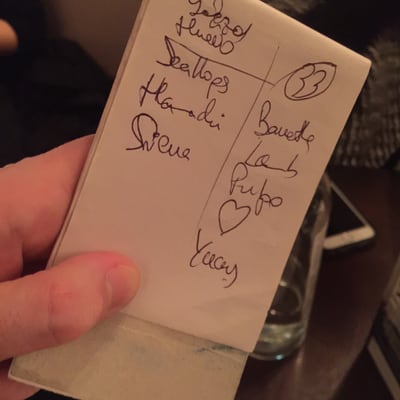 Huevo
Scallops
Hamachi
Sirena
33
Bavette
Lamb
Pulpo
Yucas